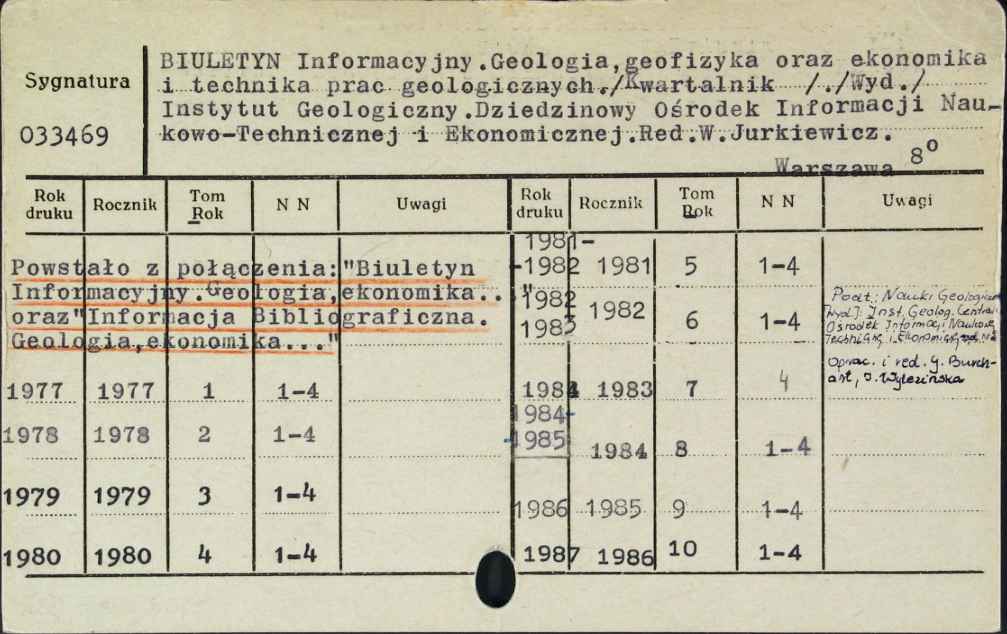 Sygnatura
033469
BIULETYN Informacyjny.Geologia,geofizyka oraz ekonomika
i technika prac geologicznych./Kwartalnik /./Wyd./
Instytut Geologiczny.Dziedzinowy Ośrodek Informacji Nau-
kowo-Technicznej i Ekonomicznej.Red.W.Jurkiewicz.
Warszawa 8⁰
Rok druku Rocznik Tom Rok N N Uwagi Rok druku Rocznik Tom Rok N N Uwagi
Powstało z połączenia:"Biuletyn
Informacyjny.Geologia,ekonomika.. "
oraz"Informacja Bibliograficzna.
Geologia,ekonomika..."
1977 1977 1 1-4
1978 1978 2 1-4
1979 1979 3 1-4
1980 1980 4 1-4
1981-
-1982 1981 5 1-4
1982
1983 1982 6 1-4
1984 1983 7 4
1984-
-1985 1984 8 1-4
1986 1985 9 1-4
1987 1986 10 1-4
Podt.: Nauki Geologiczne
Wyd.: Inst. Geolog. Centraln
Ośrodek Informacji Naukowej
Techniczną i Ekonomiczną
Oprac. i red. J. Burch-
art, J. Wyleżińska